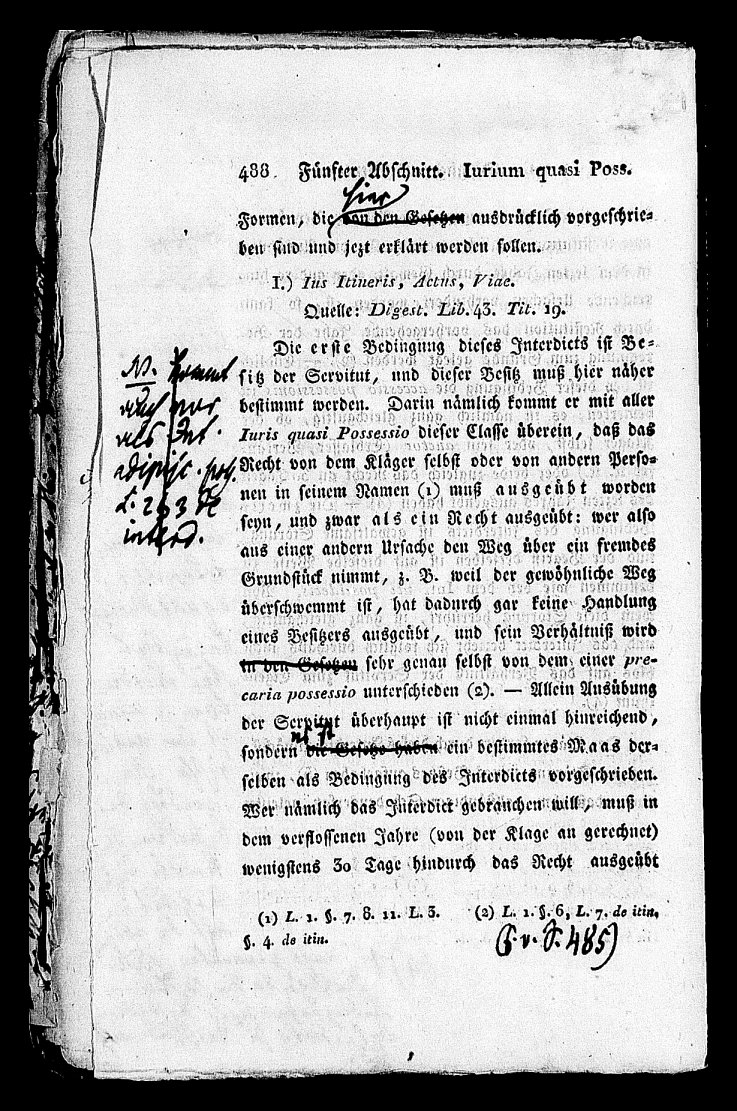 488 Fünfter Abschnitt. Iurium quasi Poss.
hier
Formen, die von den Gesetzen ausdrücklich vorgeschrie-
ben sind und jezt erklärt werden sollen.
I.) Ius Itineris, Actus, Viae.
Quelle: Digest. Lib. 43. Tit. 19.
Die erste Bedingung dieses Interdicts ist Be-
sitz der Servitut, und dieser Besitz muß hier näher
bestimmt werden. Darin nämlich kommt er mit aller
Iuris quasi Possessio dieser Classe überein, daß das
Recht von dem Kläger selbst oder von andern Perso-
nen in seinem Namen (1) muß ausgeübt worden
seyn, und zwar als ein Recht ausgeübt: wer also
aus einer andern Ursache den Weg über ein fremdes
Grundstück nimmt, z. B. weil der gewöhnliche Weg
überschwemmt ist, hat dadurch gar keine Handlung
eines Besitzers ausgeübt, und sein Verhältniß wird
in den Gesetzen sehr genau selbst von dem einer pre-
caria possessio unterschieden (2). — Allein Ausübung
der Servitut überhaupt ist nicht einmal hinreichend,
sondern die Gesetze haben ein bestimmtes Maas der-
selben als Bedingung des Interdicts vorgeschrieben.
Wer nämlich das Interdict gebrauchen will, muß in
dem verflossenen Jahre (von der Klage an gerechnet)
wenigstens 30 Tage hindurch das Recht ausgeübt
(1) L. 1. §. 7. 8. 11. L. 3. (2) L. 1. §. 6, L. 7. de itin.
§. 4. de itin.
kommt
auch vor
als Int.
adipisc. poss.
L. 2 § 3 de
interd.
S. 485)